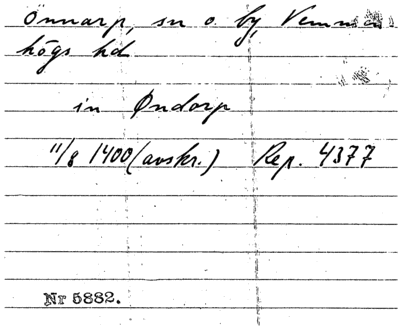 Önnarp, sn o. by, Vemmen
högs hd
in Øndorp
11/8 1400 (avskr.) Rep. 4377
Nr 5882.